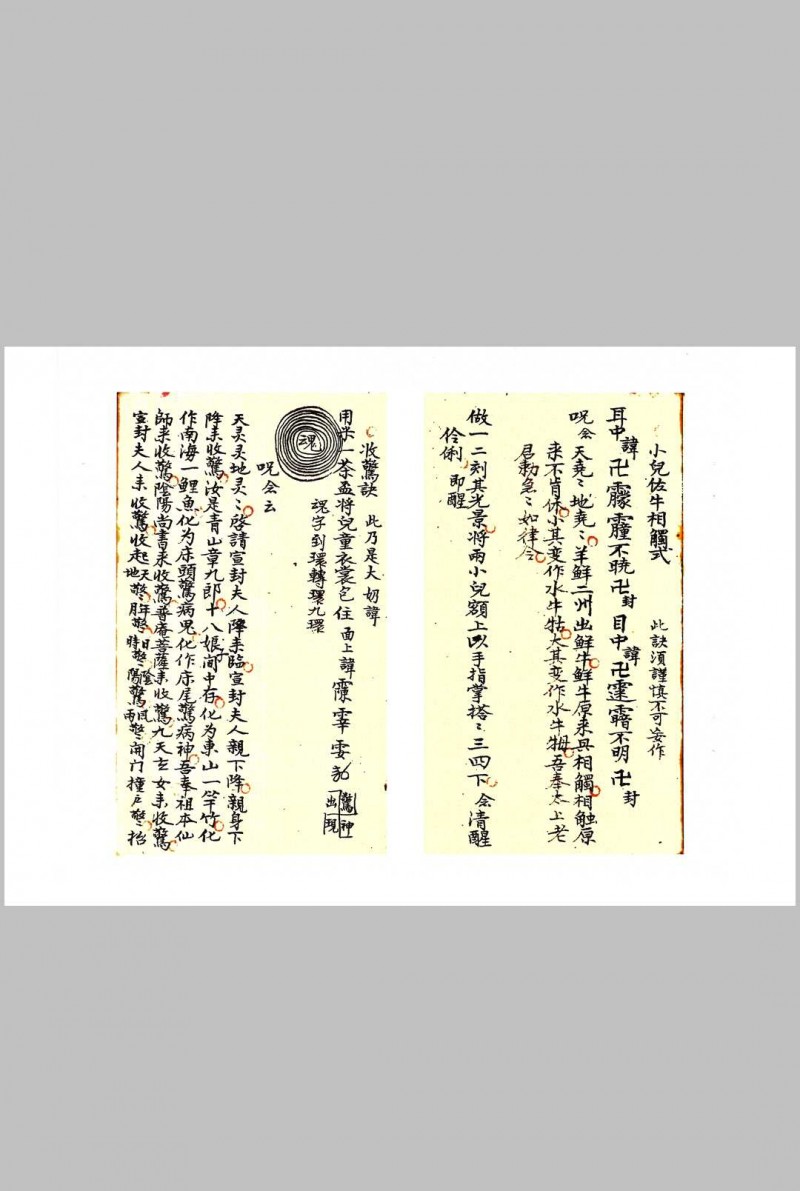 小兒佐牛相觸式　此訣須謹慎不可妄作
耳中諱卍不曉卍封 目中諱卍不明卍封
咒念天堯〻地堯〻羊鮮二州出鮮牛鮮牛原来具相觸相触原
来不肯休小其变作水牛牯大其变作水牛牳吾奉太上老
君勅急〻如律令
做一二刻其光景将兩小兒額上以手指掌搭〻三四下念清醒
伶俐即醒
收驚訣　此乃是大奶諱
用米一茶盃将兒童衣裳包住 面上諱
驚神出現
魂字到環轉環九環
魂
咒念云
天灵灵地灵〻啓請宣封夫人降来臨宣封夫人親下降親身下
降来收驚汝是青山章九郎十八娘间中存化为東山一竿竹化
作南海一鯉魚化为床頭驚病鬼化作床尾驚病神吾奉祖本仙
師来收驚陰陽尚書来收驚普庵菩薩来收驚九天玄女来收驚
宣封夫人来收驚收起天驚地驚年驚月驚日驚時驚陰驚陽驚风驚雨驚開门撞戶驚抬